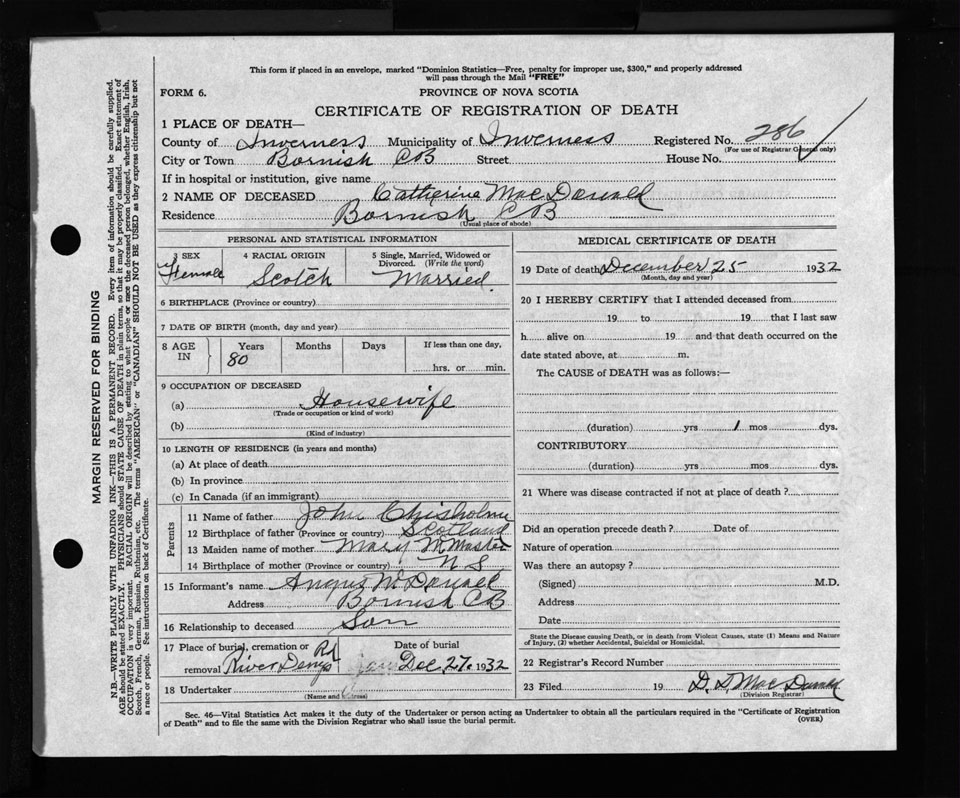 This form if placed in an envelope, marked "Dominion Statistics—Free, penalty for improper use, $300," and properly addressed
will pass through the Mail "FREE"
FORM 6. PROVINCE OF NOVA SCOTIA
CERTIFICATE OF REGISTRATION OF DEATH
1 PLACE OF DEATH—
County of Inverness Municipality of Inverness Registered No. 286
(For use of Registrar General only)
City or Town Bornish CB Street House No.
If in hospital or institution, give name
2 NAME OF DECEASED Catherine MacDonald
Residence Bornish CB
(Usual place of abode)
PERSONAL AND STATISTICAL INFORMATION
3 SEX 4 RACIAL ORIGIN 5 Single, Married, Widowed or
Divorced. (Write the word)
Female Scotch Married.
6 BIRTHPLACE (Province or country)
7 DATE OF BIRTH (month, day and year)
8 AGE IN Years Months Days If less than one day,
80 hrs. or min.
9 OCCUPATION OF DECEASED
(a) Housewife
(Trade or occupation or kind of work)
(b)
(Kind of industry)
10 LENGTH OF RESIDENCE (in years and months)
(a) At place of death
(b) In province
(c) In Canada (if an immigrant)
Parents
11 Name of father John Chisholm
12 Birthplace of father (Province or country) Scotland
13 Maiden name of mother Mary McMaster
14 Birthplace of mother (Province or country) N S
15 Informant's name Angus McDonald
Address Bornish CB
16 Relationship to deceased Son
17 Place of burial, cremation or Date of burial
removal River Denys Rd Dec 27. 1932
18 Undertaker
(Name and address)
MEDICAL CERTIFICATE OF DEATH
19 Date of death December 25 1932
(Month, day and year)
20 I HEREBY CERTIFY that I attended deceased from
19 to 19 that I last saw
h alive on 19 and that death occurred on the
date stated above, at m.
The CAUSE of DEATH was as follows:—
(duration) yrs 1 mos dys.
CONTRIBUTORY
(duration) yrs mos dys.
21 Where was disease contracted if not at place of death ?
Did an operation precede death ? Date of
Nature of operation
Was there an autopsy ?
(Signed) M.D.
Address
Date
State the Disease causing Death, or in death from Violent Causes, state (1) Means and Nature
of Injury, (2) whether Accidental, Suicidal or Homicidal.
22 Registrar's Record Number
23 Filed 19 D. D. MacDonald
(Division Registrar)
Sec. 46—Vital Statistics Act makes it the duty of the Undertaker or person acting as Undertaker to obtain all the particulars required in the "Certificate of Registration
of Death" and to file the same with the Division Registrar who shall issue the burial permit.
(OVER)
MARGIN RESERVED FOR BINDING
N.B.—WRITE PLAINLY WITH UNFADING INK—THIS IS A PERMANENT RECORD. Every item of information should be carefully supplied.
AGE should be stated EXACTLY. PHYSICIANS should STATE CAUSE OF DEATH in plain terms, so that it may be properly classified. Exact statement of
OCCUPATION is very important. RACIAL ORIGIN will be described by stating to what people or race the deceased person belonged, whether English, Irish,
Scotch, French, German, Russian, Ruthenian, etc. The terms "AMERICAN" or "CANADIAN" SHOULD NOT BE USED as they express citizenship but not
a race or people. See instructions on back of Certificate.